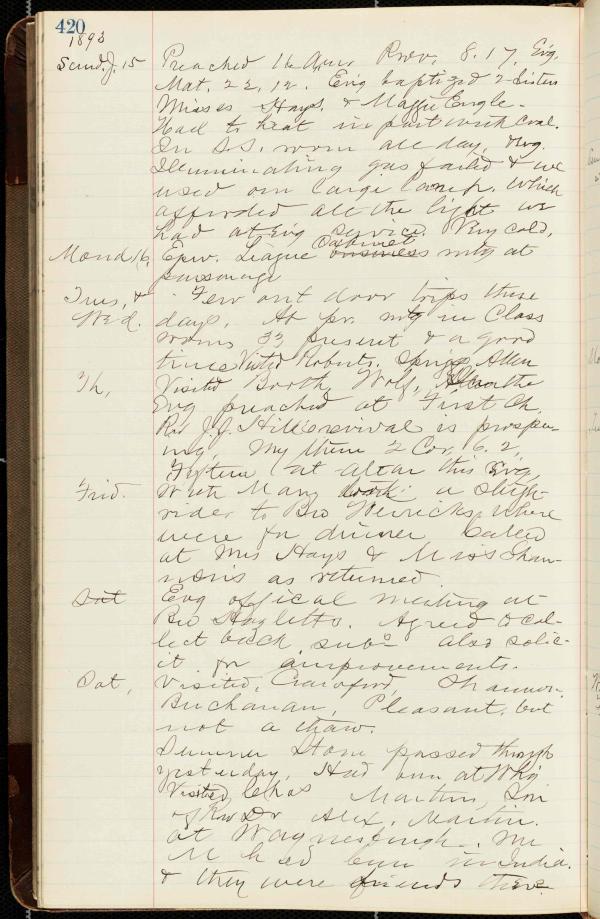 420
1893
Sund. J. 15 Preached 11 a.m. Prov. 8.17, Evg.
Mat. 22, 12. Evg baptized 2 Sisters
Misses Hays, & Maggie Engle.
Had to heat in part with coal.
In S.S. room all day,
Illuminating gas failed & we
used our large lamp. Which
afforded all the light we
had at Evg service. Very cold,
Mond 16, Epw. League Cabinet business mtg at
parsonage
Tues, & Few out door trips these
Wed. days. At pr. mtg in Class
rooms 33 present & a good
time Visited Roberts, Allen
Th, Visited Booth, Wolf,
Evg preached at First Ch.
Rev J.J. Hill's revival is prosper-
ing, My theme 2 Cor. 6. 2,
Fifteen at altar this Evg,
Frid. With Mary took a sleigh
ride to Bro Where
were for dinner Called
at Mrs Hays & Miss Shan-
non's as returned.
Sat Evg offical meeting at
Bro Hazletts. Agreed to col-
lect back subs also solic-
it for improvements.
Sat, Visited, Crawford, Shannon,
Buchanan, Pleasant, but
not a thaw.
Sumner Stone passed through
yesterday, Had been at
Visited Chas Martin, Son
of Rev Dr Alex. Martin.
at Waynesburgh. Mr
M had been in India.
& they were friends there.